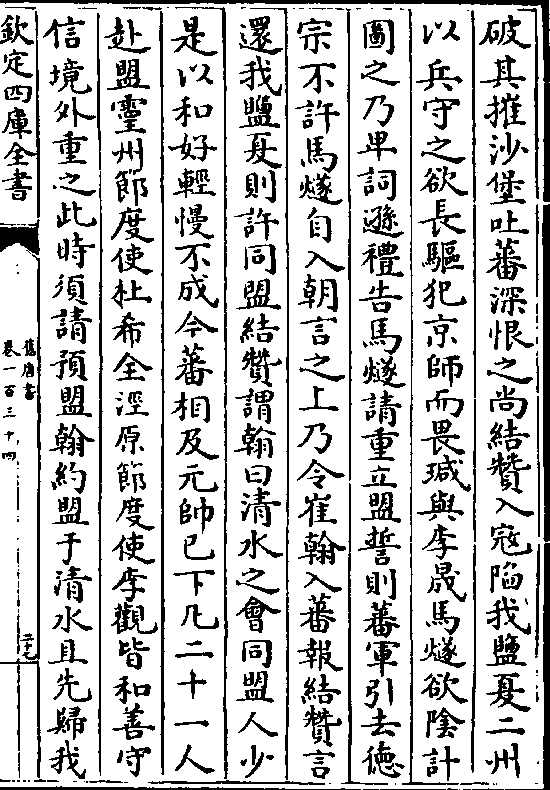 破其摧沙堡吐蕃深恨之尚結贊入寇陷我鹽夏二州
以兵守之欲長驅犯京師而畏瑊與李晟馬燧欲陰計
圖之乃卑詞遜禮告馬燧請重立盟誓則蕃軍引去德
宗不許馬燧自入朝言之上乃令崔翰入蕃報結贊言
還我鹽夏則許同盟結贊謂翰曰清水之會同盟人少
是以和好輕慢不成今蕃相及元帥已下凡二十一人
赴盟靈州節度使杜希全涇原節度使李觀皆和善守
信境外重之此時須請預盟翰約盟于清水且先歸我
欽定四庫全書
舊唐書
卷一百三十四
二十七